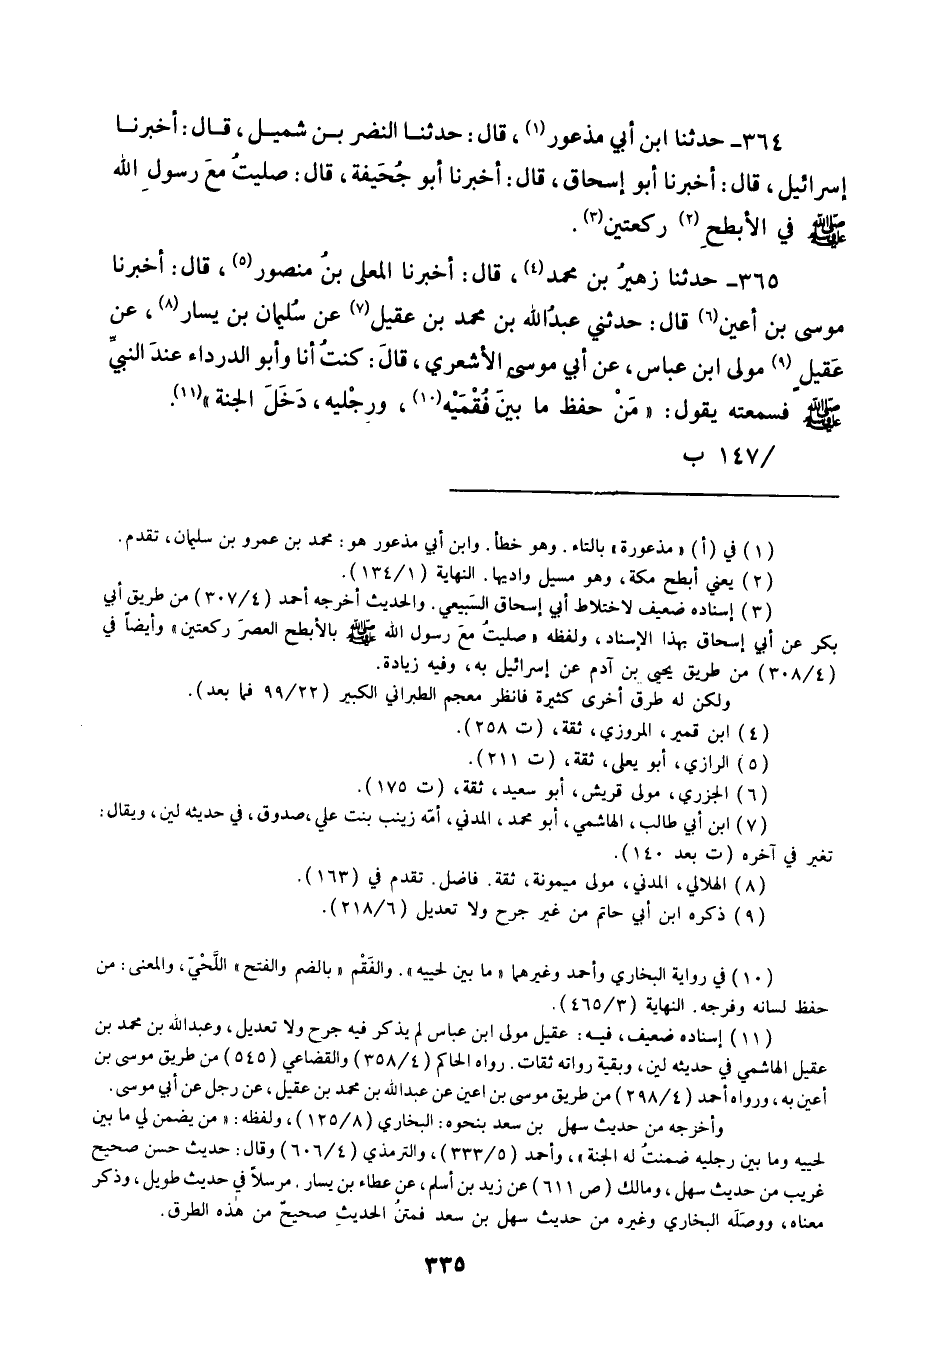 ٣٦٤ـ حدثنا ابن أبي مذعور(١)، قال: حدثنـا النضر بـن شميـل، قـال: أخبرنـا
إسرائيل، قال: أخبرنا أبو إسحاق، قال: أخبرنا أبو جُحَيفة، قال: صليتُ معَ رسولِ الله
ﷺ في الأبطحِ(٢) ركعتين(٣).
٣٦٥ـ حدثنا زهيرُ بن محمد(٤)، قال: أخبرنا المعلى بنُ منصور(٥)، قال: أخبرنا
موسى بن أعين(٦) قال: حدثني عبدُالله بن محمد بن عقيل(٧) عن سُليمان بن يسار(٨)، عن
عَقيلٍ(٩) مولى ابن عباس، عن أبي موسى الأشعري، قالَ: كنتُ أنا وأبو الدرداء عندَ النبيِّ
ﷺ فسمعته يقول: « مَنْ حفظ ما بينَ فُقْمَيْه(١٠)، ورجْليه، دَخَلَ الجنة »(١١).
/١٤٧ ب
(١) في (أ) « مذعورة » بالتاء. وهو خطأ. وابن أبي مذعور هو: محمد بن عمرو بن سليمان، تقدم.
(٢) يعني أبطح مكة، وهو مسيل واديها. النهاية (١٣٤/١).
(٣) إسناده ضعيف لاختلاط أبي إسحاق السَّبيعي. والحديث أخرجه أحمد (٣٠٧/٤) من طريق أبي
بكر عن أبي إسحاق بهذا الإسناد، ولفظه « صليتُ معَ رسول الله ﷺ بالأبطح العصرَ ركعتين » وأيضاً في
(٣٠٨/٤) من طريق يحيى بن آدم عن إسرائيل به، وفيه زيادة.
ولكن له طرق أخرى كثيرة فانظر معجم الطبراني الكبير (٩٩/٢٢ فما بعد).
(٤) ابن قمير، المروزي، ثقة، (ت ٢٥٨).
(٥) الرازي، أبو يعلى، ثقة، (ت ٢١١).
(٦) الجزري، مولى قريش، أبو سعيد، ثقة، (ت ١٧٥).
(٧) ابن أبي طالب، الهاشمي، أبو محمد، المدني، أمّه زينب بنت علي، صدوق، في حديثه لين، ويقال:
تغير في آخره (ت بعد ١٤٠).
(٨) الهلالي، المدني، مولى ميمونة، ثقة. فاضل. تقدم في (١٦٣).
(٩) ذكره ابن أبي حاتم من غير جرح ولا تعديل (٢١٨/٦).
(١٠) في رواية البخاري وأحمد وغيرهما « ما بين لحييه ». والفَقْم « بالضم والفتح » اللَّحْيَ، والمعنى: من
حفظ لسانه وفرجه. النهاية (٤٦٥/٣).
(١١) إسناده ضعيف، فيـه: عقيل مولى ابن عباس لم يذكر فيه جرح ولا تعديل، وعبدالله بن محمد بن
عقيل الهاشمي في حديثه لين، وبقية رواته ثقات. رواه الحاكم (٣٥٨/٤) والقضاعي (٥٤٥) من طريق موسى بن
أعين به، ورواه أحمد (٢٩٨/٤) من طريق موسى بن اعين عن عبدالله بن محمد بن عقيل، عن رجل عن أبي موسى.
وأخرجه من حديث سهل بن سعد بنحوه: البخاري (١٢٥/٨)، ولفظه: « من يضمن لي ما بين
لحييه وما بين رجليه ضمنتُ له الجنة »، وأحمد (٣٣٣/٥)، والترمذي (٦٠٦/٤) وقال: حديث حسن صحيح
غريب من حديث سهل، ومالك (ص ٦١١) عن زيد بن أسلم، عن عطاء بن يسار. مرسلاً في حديث طويل، وذكر
معناه، ووصَلَه البخاري وغيره من حديث سهل بن سعد فمتنُ الحديثِ صحيحٌ من هذه الطرق.
٣٣٥